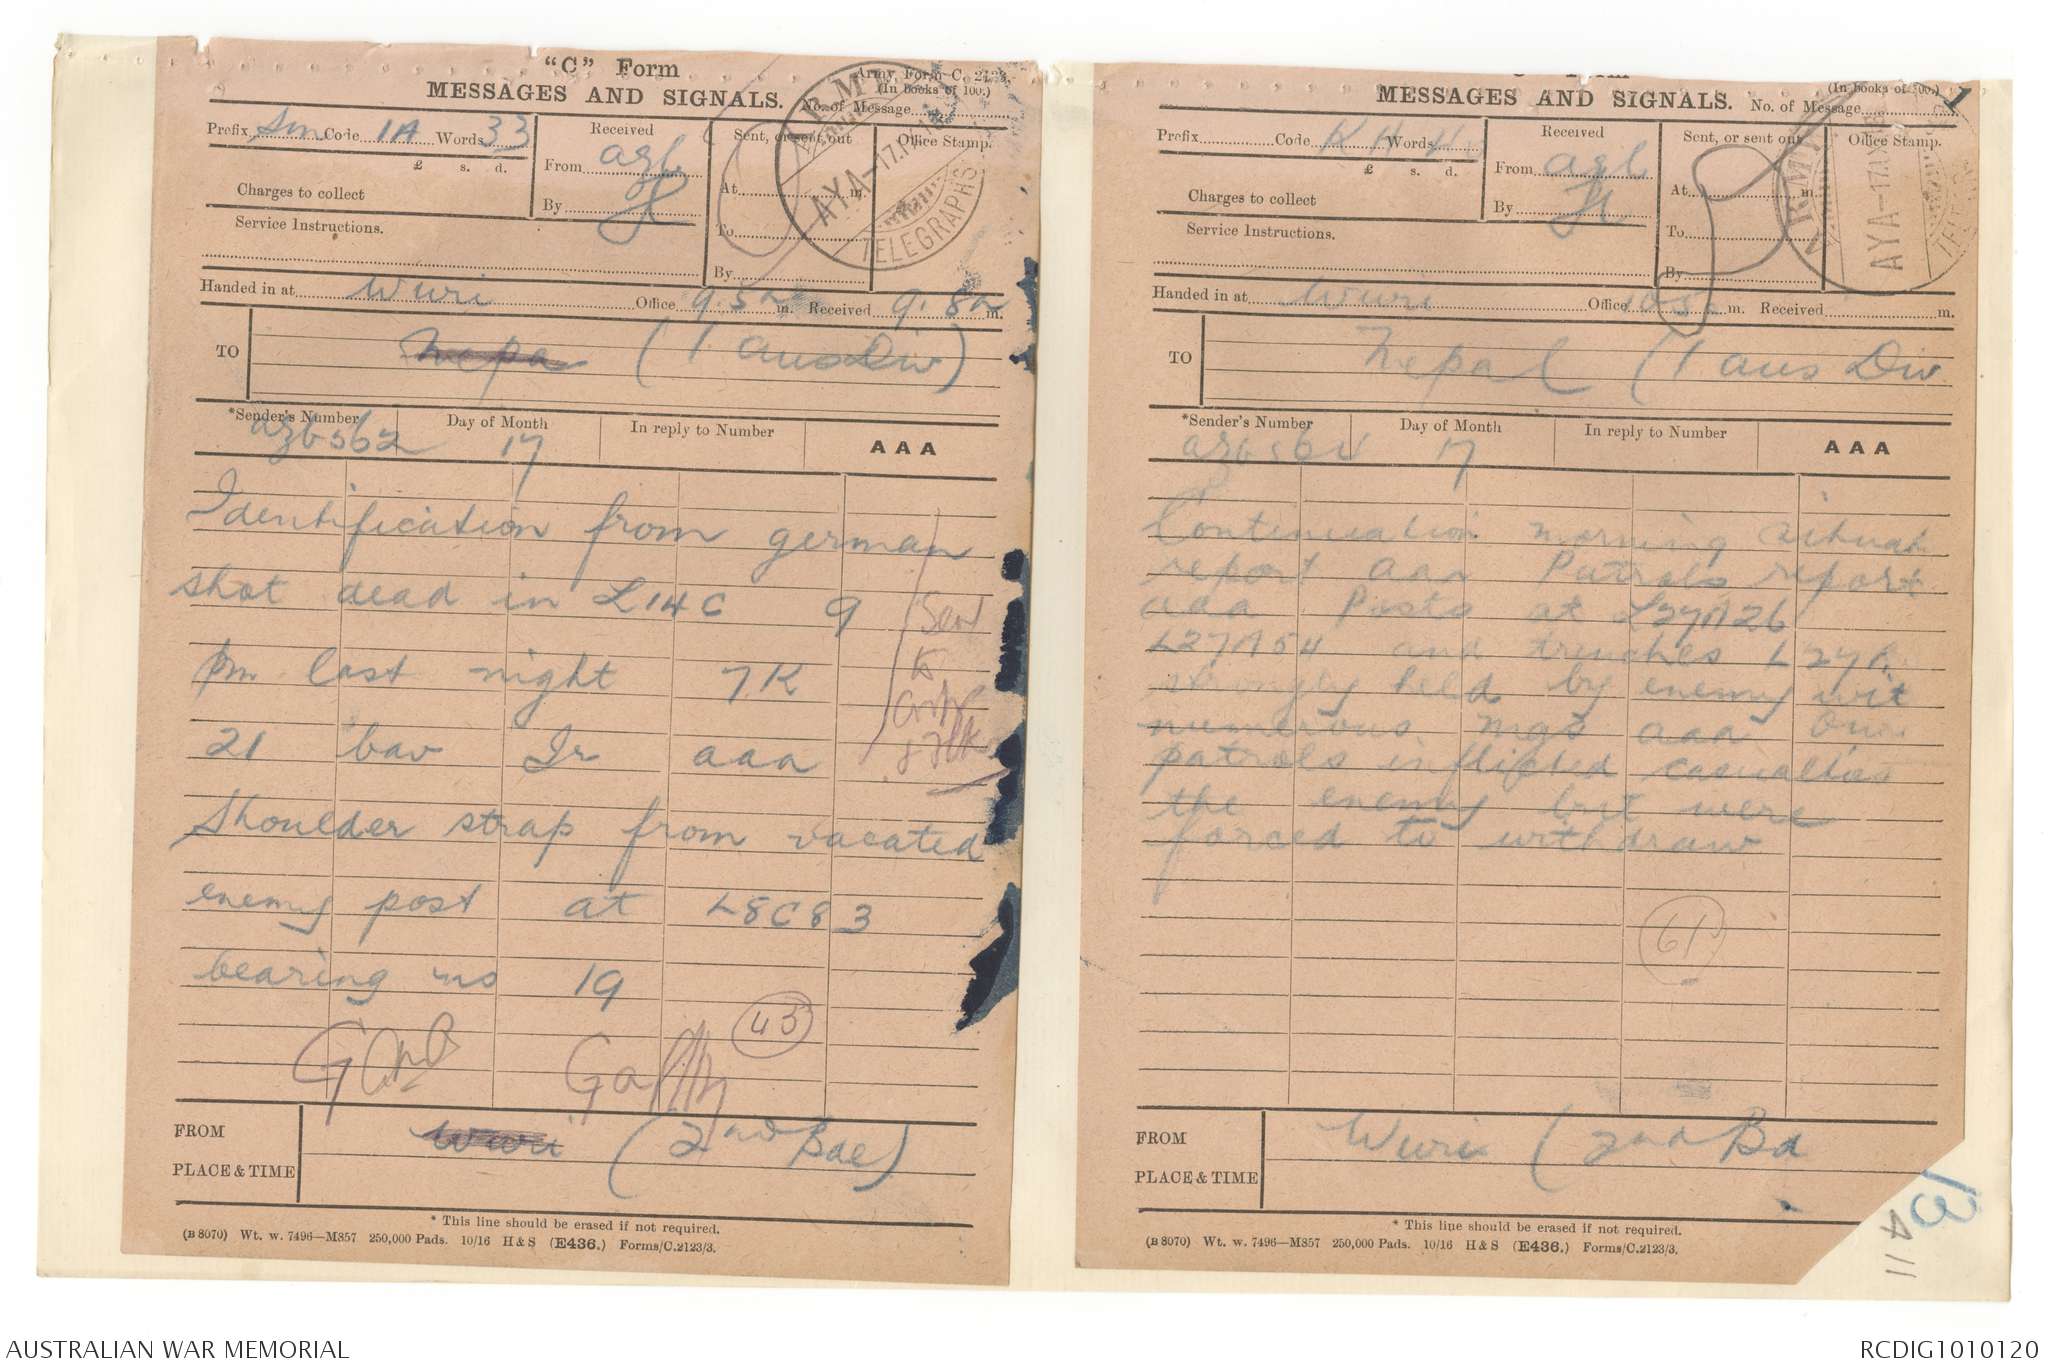 "C" Form
MESSAGES AND SIGNALS.
Army Form C. 2123.
(In books of 100.)
No. of Message
Prefix Sm Code 1A Words 33
£ s. d.
Charges to collect
Service Instructions.
Received
From azb
By
Sent, or sent out
At m.
To
By
Office Stamp.
ARMY TELEGRAPHS
AYA-17.IV.17
Handed in at Wuri Office 9.5a m. Received 9.8a m.
TO
Nepa (1 Aus Div)
*Sender's Number
Day of Month
In reply to Number
AAA
azb562 17
Identification from german
shot dead in L14C 9
pm last night 7K
21 bav Ir aaa
Shoulder strap from vacated
enemy post at L8C83
bearing no 19
Sent
to
43
FROM
PLACE & TIME
Wuri (2nd Bde)
* This line should be erased if not required.
(B 8070) Wt. w. 7496—M857 250,000 Pads. 10/16 H & S (E436.) Forms/C.2123/3.
MESSAGES AND SIGNALS.
(In books of 100.)
No. of Message
1
Prefix Code Words
£ s. d.
Charges to collect
Service Instructions.
Received
From azb
By
Sent, or sent out
At m.
To
By
Office Stamp.
ARMY
AYA-17.IV
Handed in at Wuri Office m. Received m.
TO
Nepal (1 aus Div
*Sender's Number
Day of Month
In reply to Number
AAA
17
Continuation morning situat
report aaa Patrols report
aaa Posts at L27A26
L27A54 and trenches L27A
strongly held by enemy wit
numerous mgs aaa Our
patrols inflicted casualties
the enemy but were
forced to withdraw
61
FROM
PLACE & TIME
Wuri (2nd Bd
* This line should be erased if not required.
(B 8070) Wt. w. 7496—M857 250,000 Pads. 10/16 H & S (E436.) Forms/C.2123/3.
13
A 11
AUSTRALIAN WAR MEMORIAL
RCDIG1010120